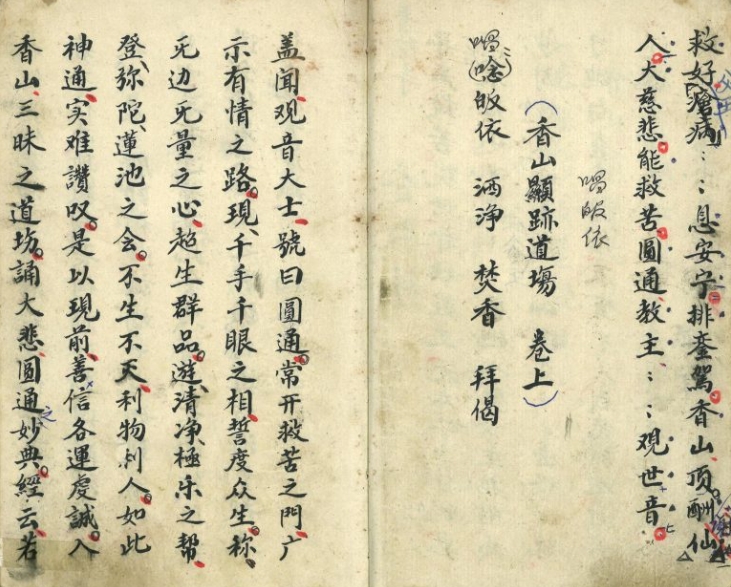 救好瘡病：：息安宁排鸞駕香山頂酬仙
人大慈悲能救苦圓通教主：：观世音
唱皈依
（香山顯跡道塲 卷上）
唱唸皈依 洒浄 焚香 拜偈
盖闻观音大士號曰圓通常开救苦之門广
示有情之路现千手千眼之相誓度众生称
无边无量之心超生群品遊清净極乐之帮
登弥陀蓮池之会不生不灭利物利人如此
神通实难讚叹是以現前善信各運虔誠入
香山三昧之道塲誦大悲圓通之妙典經云若